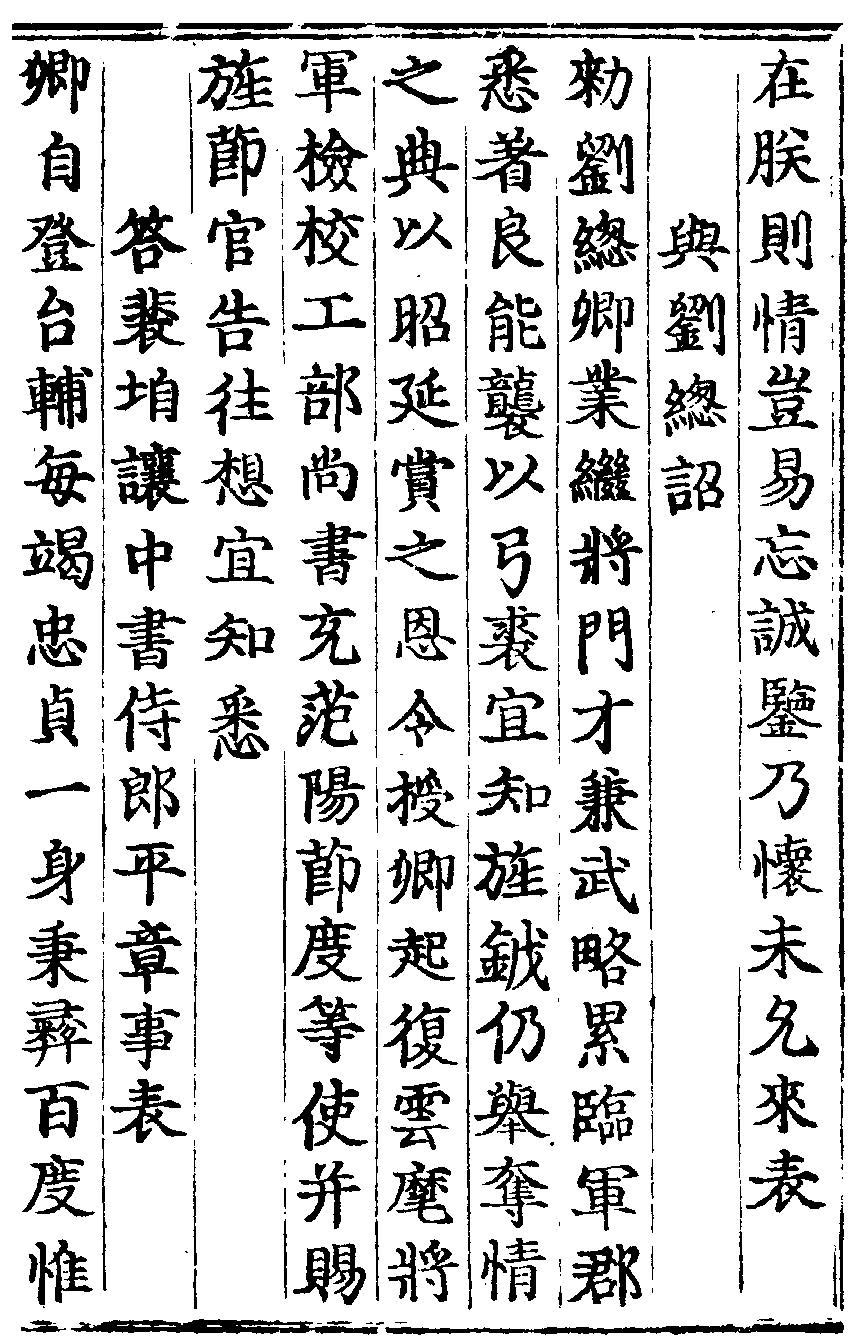 在朕則情豈易忘誠鑒乃懷未允來表
與劉緫詔
勑劉緫卿業繼將門才兼武略累臨軍郡
悉著良能襲以弓裘宜知旌鉞仍舉奪情
之典以昭延賞之恩今授卿起復雲麾將
軍檢校工部尚書充范陽節度等使并賜
旌節官告往想宜知悉
答裴垍讓中書侍郎平章事表
卿自登台輔每竭忠貞一身秉彛百度惟